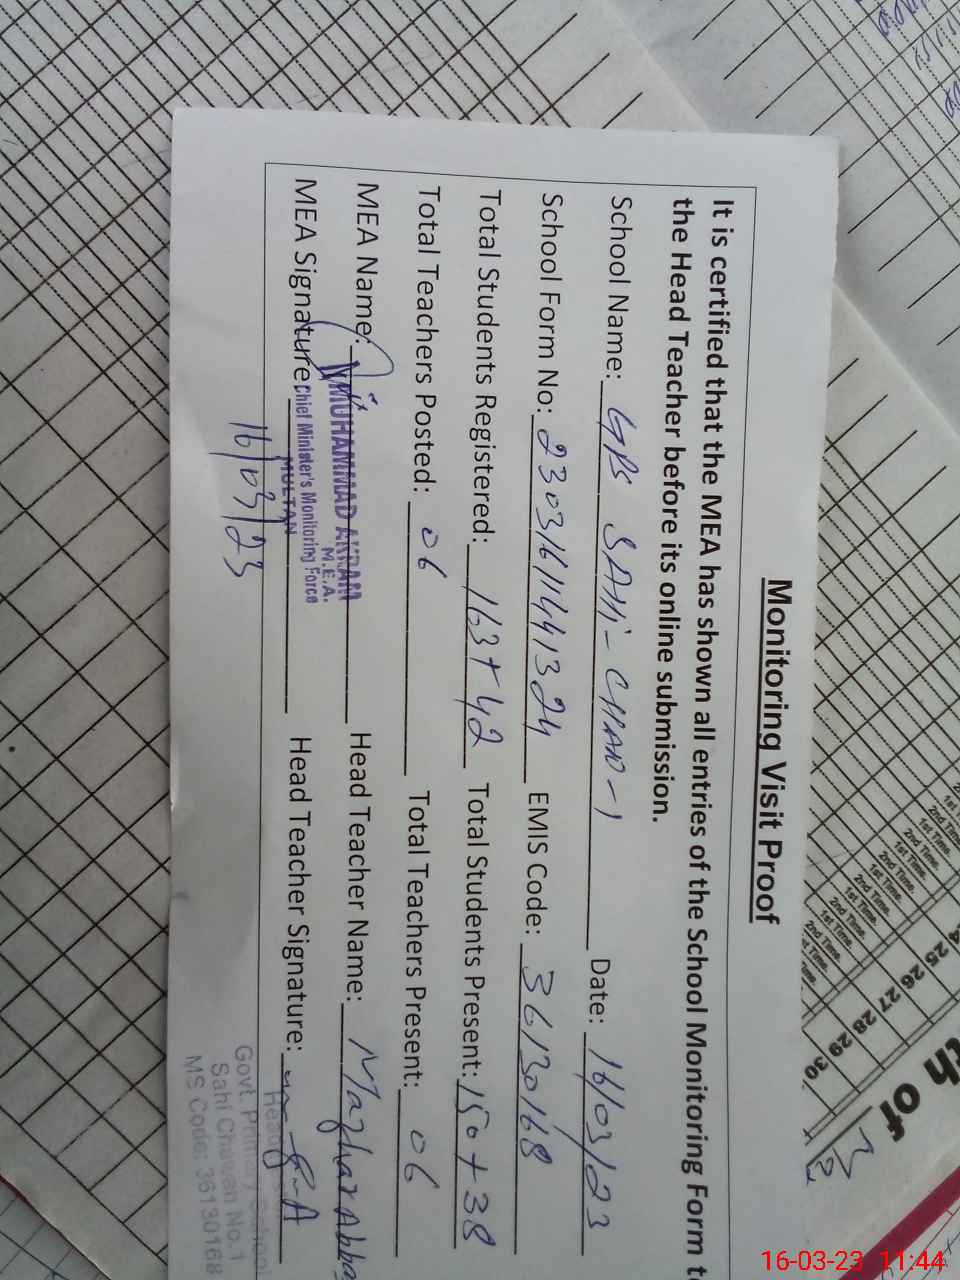 Monitoring Visit Proof
It is certified that the MEA has shown all entries of the School Monitoring Form t
the Head Teacher before its online submission.
School Name: GPS SAHI-CHAO-1 Date: 16/03/23
School Form No: 23031611441324 EMIS Code: 36130168
Total Students Registered: 163+42 Total Students Present: 150+38
Total Teachers Posted: 06 Total Teachers Present: 06
MEA Name: MUHAMMAD AKRAM Head Teacher Name: Mazhar Abba
M.E.A.
MEA Signature Chief Minister's Monitoring Force Head Teacher Signature:
MULTAN
16/03/23
Head
Govt. Primary School
Sahi Chawan No.1
MS Code: 36130168
1st Time.
2nd Time.
1st Time.
2nd Time.
1st Time.
2nd Time.
1st Time.
2nd Time.
1st Time.
2nd Time.
1st Time.
2nd Time.
25 26 27 28 29 30
th of
16-03-23 11:44